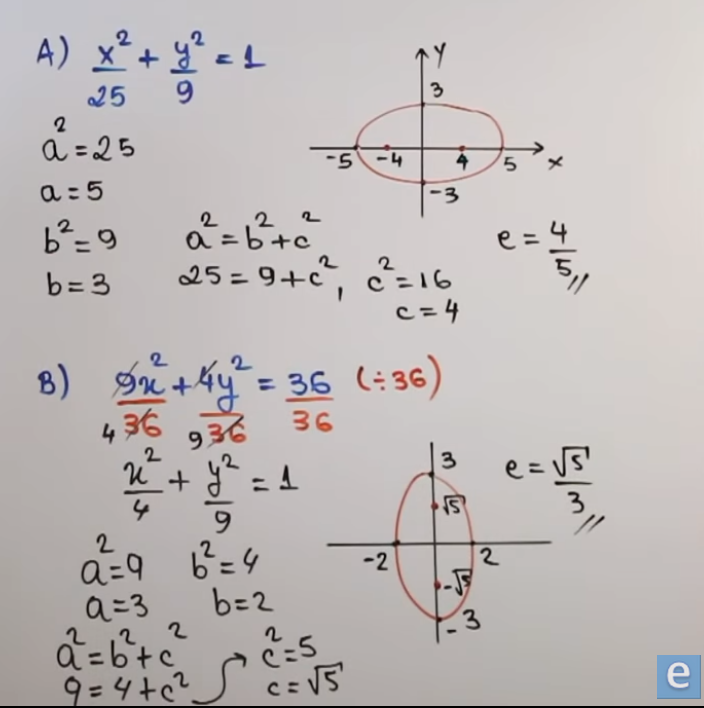 A) x²/25 + y²/9 = 1
a² = 25
a = 5
b² = 9
b = 3
a² = b² + c²
25 = 9 + c² , c² = 16
c = 4
y
3
-5 -4 4 5 x
-3
e = 4/5 //
B) 9x²/36 + 4y²/36 = 36/36 (÷36)
4 9
x²/4 + y²/9 = 1
a² = 9 b² = 4
a = 3 b = 2
a² = b² + c²
9 = 4 + c²
c² = 5
c = √5
3
√5
-2 2
-√5
-3
e = √5/3 //
e